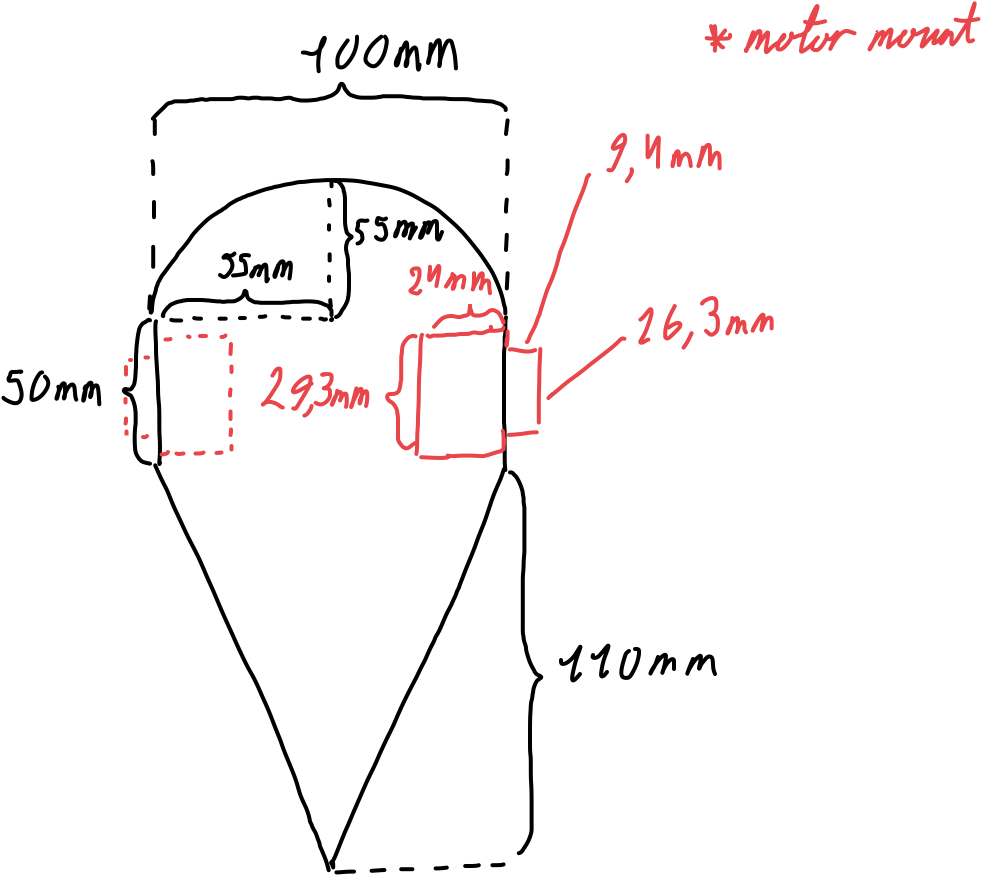 * motor mount
100mm
9,4mm
55mm
55mm
24mm
26,3mm
50mm
29,3mm
110mm